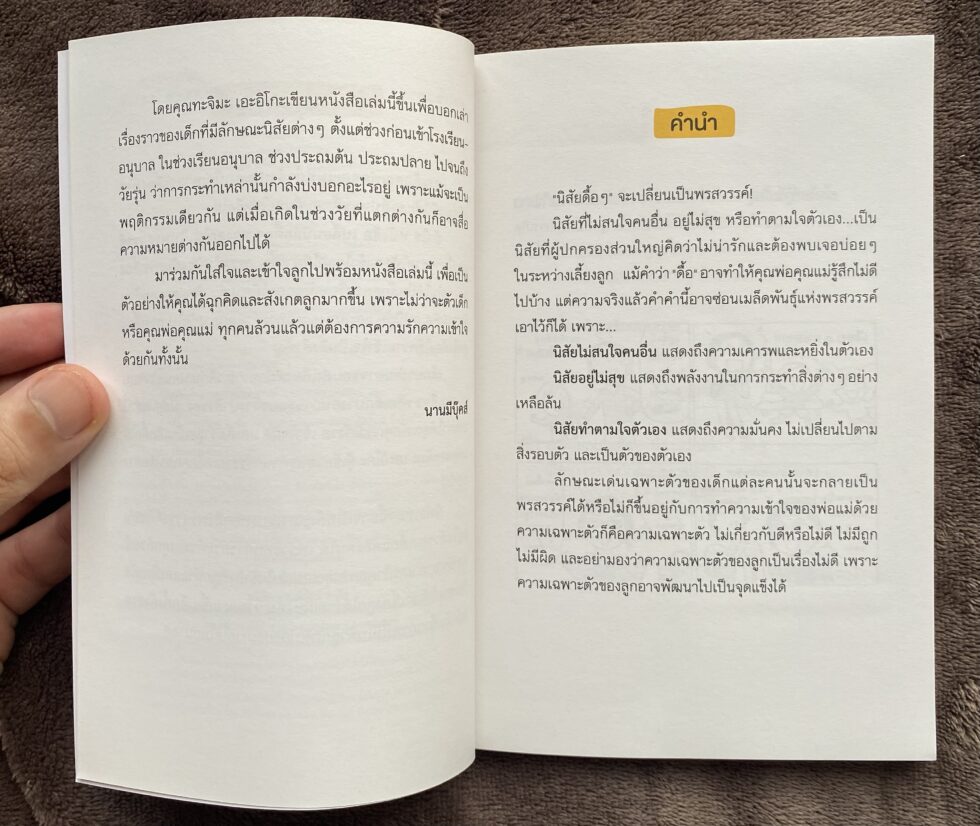 โดยคุณทะจิมะ เอะอิโกะเขียนหนังสือเล่มนี้ขึ้นเพื่อบอกเล่า
เรื่องราวของเด็กที่มีลักษณะนิสัยต่างๆ ตั้งแต่ช่วงก่อนเข้าโรงเรียน-
อนุบาล ในช่วงเรียนอนุบาล ช่วงประถมต้น ประถมปลาย ไปจนถึง
วัยรุ่น ว่าการกระทำเหล่านั้นกำลังบ่งบอกอะไรอยู่ เพราะแม้จะเป็น
พฤติกรรมเดียวกัน แต่เมื่อเกิดในช่วงวัยที่แตกต่างกันก็อาจสื่อ
ความหมายต่างกันออกไปได้
มาร่วมกันใส่ใจและเข้าใจลูกไปพร้อมหนังสือเล่มนี้ เพื่อเป็น
ตัวอย่างให้คุณได้ฉุกคิดและสังเกตลูกมากขึ้น เพราะไม่ว่าจะตัวเด็ก
หรือคุณพ่อคุณแม่ ทุกคนล้วนแล้วแต่ต้องการความรักความเข้าใจ
ด้วยกันทั้งนั้น
นานมีบุ๊คส์
คำนำ
"นิสัยดื้อๆ" จะเปลี่ยนเป็นพรสวรรค์!
นิสัยที่ไม่สนใจคนอื่น อยู่ไม่สุข หรือทำตามใจตัวเอง...เป็น
นิสัยที่ผู้ปกครองส่วนใหญ่คิดว่าไม่น่ารักและต้องพบเจอบ่อยๆ
ในระหว่างเลี้ยงลูก แม้คำว่า "ดื้อ" อาจทำให้คุณพ่อคุณแม่รู้สึกไม่ดี
ไปบ้าง แต่ความจริงแล้วคำคำนี้อาจซ่อนเมล็ดพันธุ์แห่งพรสวรรค์
เอาไว้ก็ได้ เพราะ...
นิสัยไม่สนใจคนอื่น แสดงถึงความเคารพและหยิ่งในตัวเอง
นิสัยอยู่ไม่สุข แสดงถึงพลังงานในการกระทำสิ่งต่างๆ อย่าง
เหลือล้น
นิสัยทำตามใจตัวเอง แสดงถึงความมั่นคง ไม่เปลี่ยนไปตาม
สิ่งรอบตัว และเป็นตัวของตัวเอง
ลักษณะเด่นเฉพาะตัวของเด็กแต่ละคนนั้นจะกลายเป็น
พรสวรรค์ได้หรือไม่ก็ขึ้นอยู่กับการทำความเข้าใจของพ่อแม่ด้วย
ความเฉพาะตัวก็คือความเฉพาะตัว ไม่เกี่ยวกับดีหรือไม่ดี ไม่มีถูก
ไม่มีผิด และอย่ามองว่าความเฉพาะตัวของลูกเป็นเรื่องไม่ดี เพราะ
ความเฉพาะตัวของลูกอาจพัฒนาไปเป็นจุดแข็งได้